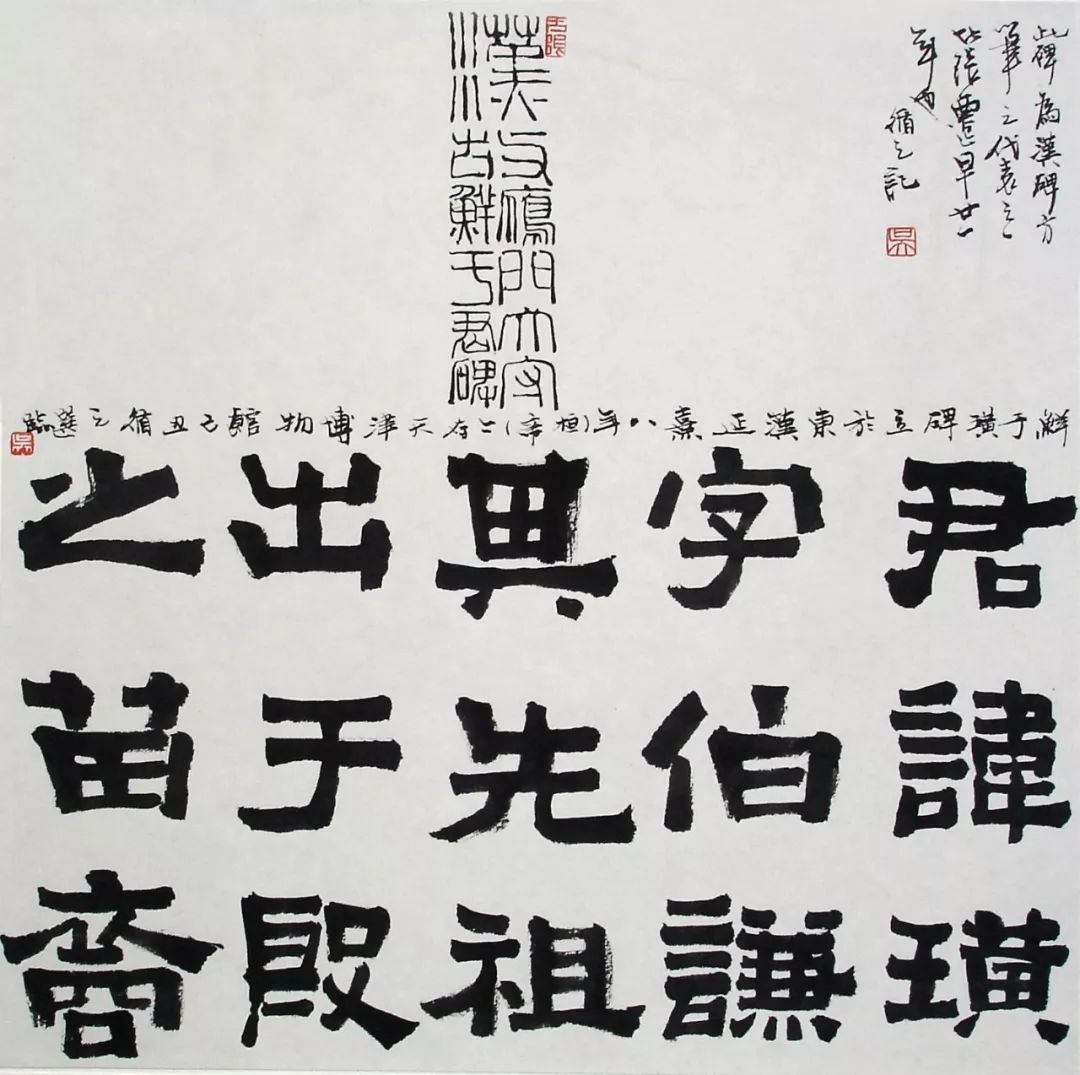 漢故雁門太守
鮮于君碑
此碑為漢碑方
筆之代表之一
比張遷早廿一
年也
循之記
吳
鮮于璜碑立於東漢延熹八年(桓帝)存天津博物館己丑循之選臨
吳
君諱璜
字伯謙
其先祖
出于殷
之苗裔